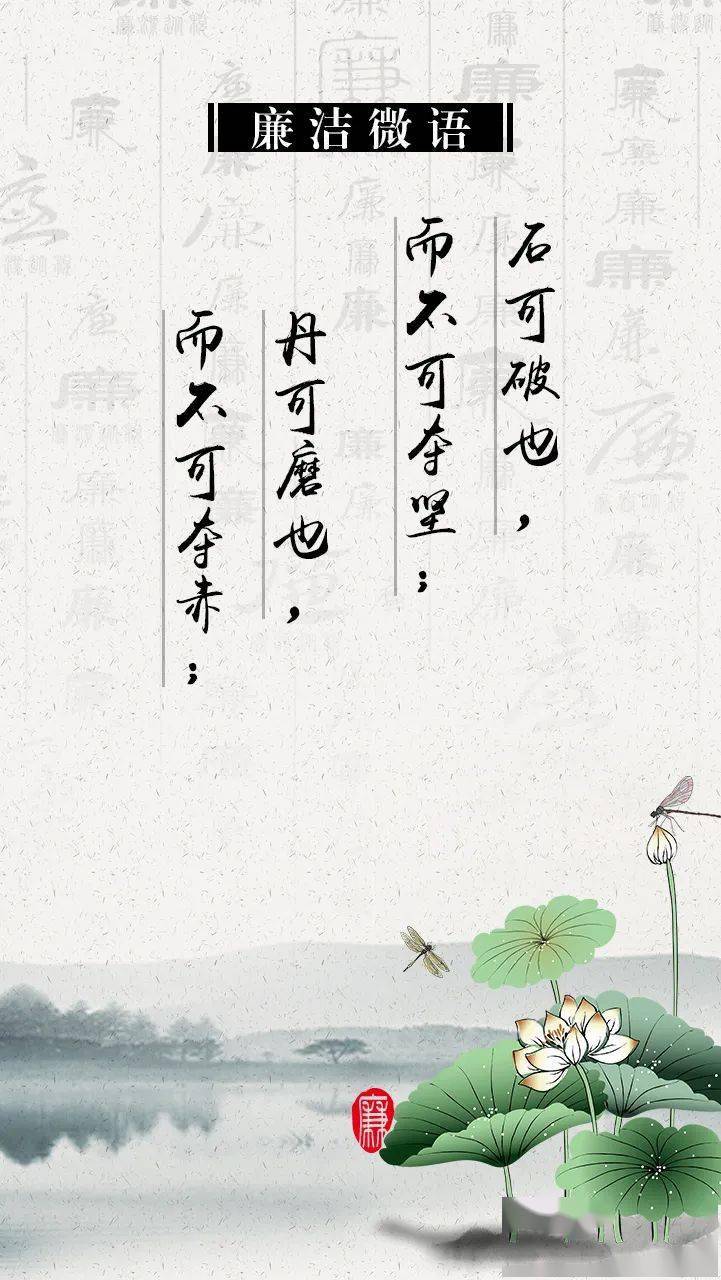 廉洁微语
石可破也，
而不可夺坚；
丹可磨也，
而不可夺赤；
廉